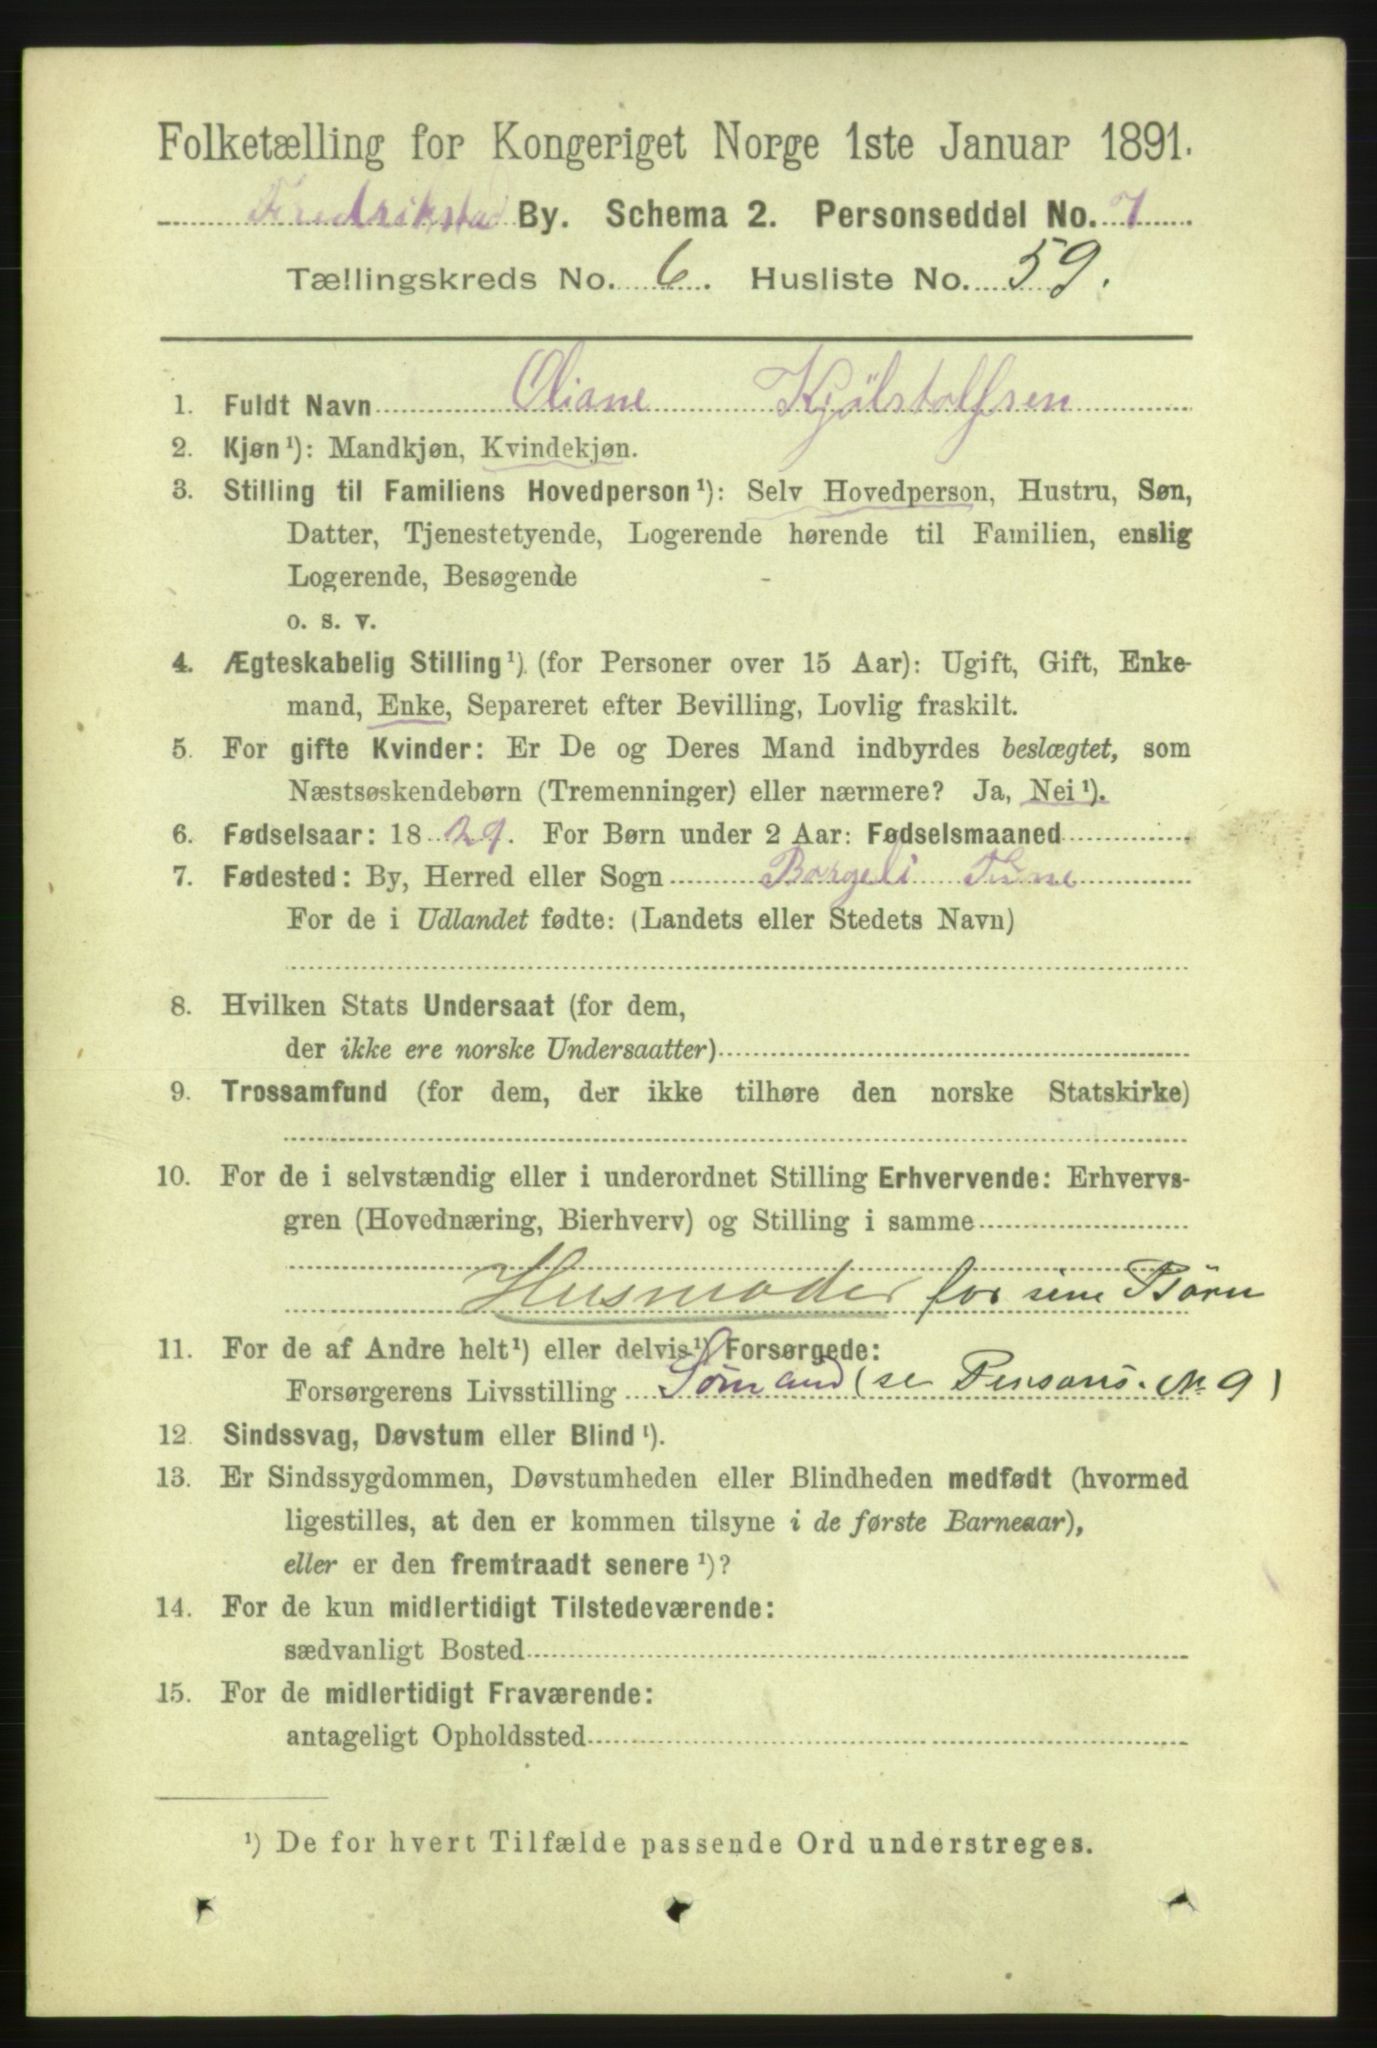 Folketælling for Kongeriget Norge 1ste Januar 1891.
Fredrikstad By. Schema 2. Personseddel No. 7
Tællingskreds No. 6. Husliste No. 59.
1. Fuldt Navn Oliane Kjölstolfsen
2. Kjøn ¹): Mandkjøn, Kvindekjøn.
3. Stilling til Familiens Hovedperson ¹): Selv Hovedperson, Hustru, Søn,
Datter, Tjenestetyende, Logerende hørende til Familien, enslig
Logerende, Besøgende
o. s. v.
4. Ægteskabelig Stilling ¹) (for Personer over 15 Aar): Ugift, Gift, Enke-
mand, Enke, Separeret efter Bevilling, Lovlig fraskilt.
5. For gifte Kvinder: Er De og Deres Mand indbyrdes beslægtet, som
Næstsøskendebørn (Tremenninger) eller nærmere? Ja, Nei ¹).
6. Fødselsaar: 18 29. For Børn under 2 Aar: Fødselsmaaned
7. Fødested: By, Herred eller Sogn Borgeli Tune
For de i Udlandet fødte: (Landets eller Stedets Navn)
8. Hvilken Stats Undersaat (for dem,
der ikke ere norske Undersaatter)
9. Trossamfund (for dem, der ikke tilhøre den norske Statskirke)
10. For de i selvstændig eller i underordnet Stilling Erhvervende: Erhvervs-
gren (Hovednæring, Bierhverv) og Stilling i samme
Husmoder for sine Börn
11. For de af Andre helt ¹) eller delvis ¹) Forsørgede:
Forsørgerens Livsstilling Sömand (se Persons. No 9)
12. Sindssvag, Døvstum eller Blind ¹).
13. Er Sindssygdommen, Døvstumheden eller Blindheden medfødt (hvormed
ligestilles, at den er kommen tilsyne i de første Barneaar),
eller er den fremtraadt senere ¹)?
14. For de kun midlertidigt Tilstedeværende:
sædvanligt Bosted
15. For de midlertidigt Fraværende:
antageligt Opholdssted
¹) De for hvert Tilfælde passende Ord understreges.